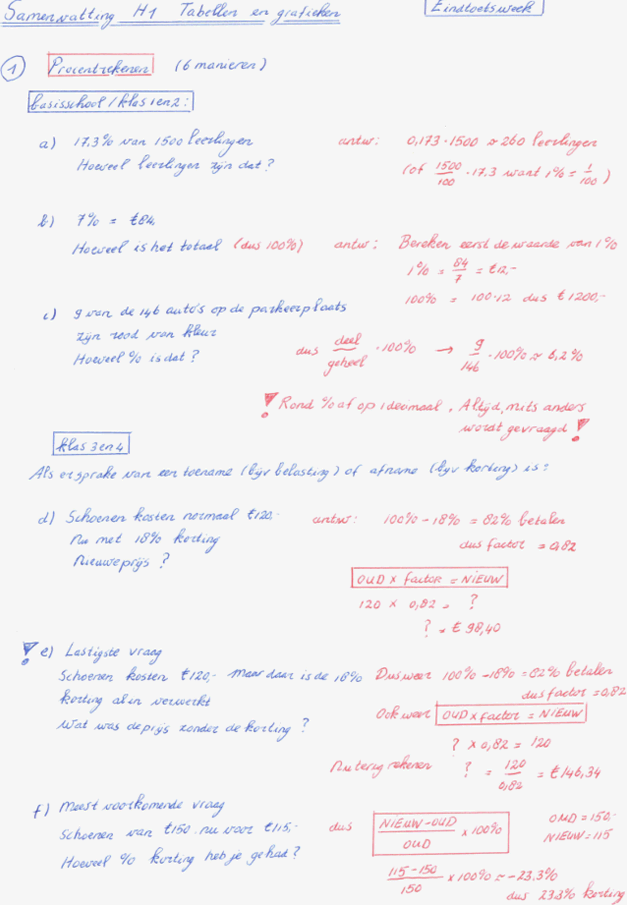 Samenvatting H1 Tabellen en grafieken
Eindtoetsweek
1 Procentrekenen (6 manieren)
basisschool / klas 1 en 2:
a) 17,3% van 1500 leerlingen
Hoeveel leerlingen zijn dat?
antw: 0,173 · 1500 ≈ 260 leerlingen
(of 1500/100 · 17.3 want 1% = 1/100)
b) 7% = €84,
Hoeveel is het totaal (dus 100%)
antw: Bereken eerst de waarde van 1%
1% = 84/7 = €12,-
100% = 100·12 dus €1200,-
c) 9 van de 146 auto's op de parkeerplaats
zijn rood van kleur
Hoeveel % is dat?
dus deel/geheel · 100% → 9/146 · 100% ≈ 6,2%
! Rond % af op 1 decimaal, Altijd, mits anders
wordt gevraagd !
klas 3 en 4
Als er sprake van een toename (bijv belasting) of afname (bijv korting) is:
d) Schoenen kosten normaal €120,-
Nu met 18% korting
Nieuwe prijs ?
antw: 100% - 18% = 82% betalen
dus factor = 0,82
OUD x factor = NIEUW
120 x 0,82 = ?
? = € 98,40
! e) Lastigste vraag
Schoenen kosten €120,- maar daar is de 18%
korting al in verwerkt
Wat was de prijs zonder de korting ?
Dus weer 100% - 18% = 82% betalen
dus factor = 0,82
Ook weer OUD x factor = NIEUW
? x 0,82 = 120
Nu terug rekenen ? = 120/0,82 = €146,34
f) Meest voorkomende vraag
Schoenen van €150 nu voor €115,-
Hoeveel % korting heb je gehad?
dus NIEUW-OUD/OUD x 100%
OUD = 150,-
NIEUW = 115
115-150/150 x 100% ≈ -23,3%
dus 23,3% korting